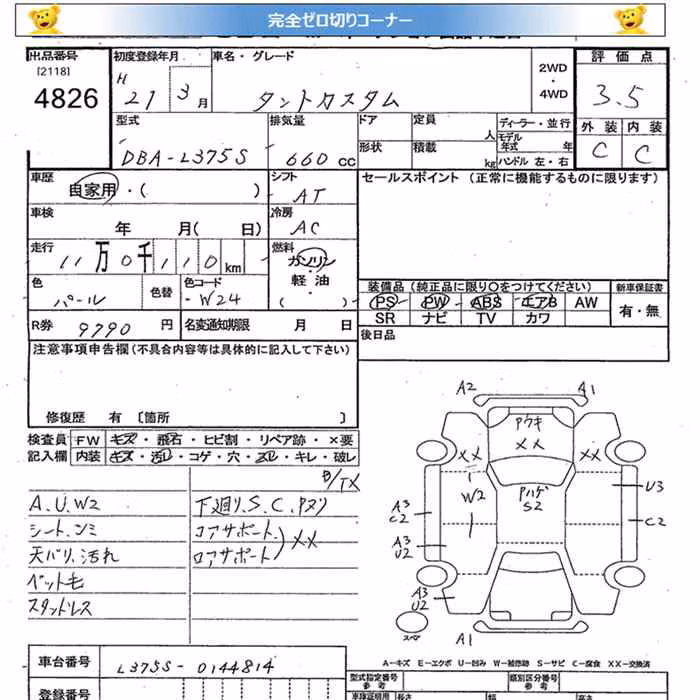 完全ゼロ切りコーナー
出品番号 初度登録年月 車名・グレード 評価点
[2118] 4826
H 21 3月 タントカスタム 2WD・4WD 3.5
外装 内装
C C
型式 排気量 ドア 定員 人 ディーラー・並行
DBA-L375S 660cc 形状 積載 kg モデル年式 年
ハンドル 左・右
車歴 自家用・( ) シフト AT セールスポイント (正常に機能するものに限ります)
車検 年 月( 日) 冷房 AC
走行 11万0千110km 燃料 ガソリン
軽油
( )
色 パール 色替 色コード -W24
装備品(純正品に限り○をつけてください) 新車保証書
PS PW ABS エアB AW 有・無
SR ナビ TV カワ
R券 9790円 名変通知期限 月 日 後日品
注意事項申告欄(不具合内容等は具体的に記入して下さい)
修復歴 有 〔箇所 〕
検査員 FW キズ・飛石・ヒビ割・リペア跡・×要
記入欄 内装 キズ・汚レ・コゲ・穴・スレ・キレ・破レ
A.U.W2
シート.シミ
天バリ.汚れ
ペット毛
スタッドレス
下廻り.S.C.Pヌリ
コアサポート.
ロアサポート
XX
A2 A1
XX XX XX
W2
Pハゲ
S2
U3
A3
C2
C2
A3
U2
A3
U2
スペア
A1
A-キズ E-エクボ U-凹み W-補修跡 S-サビ C-腐食 XX-交換済
車台番号 L375S-0144814
登録番号
型式指定番号 参考 類別区分番号 参考
車検証明用 長さ 幅 高さ